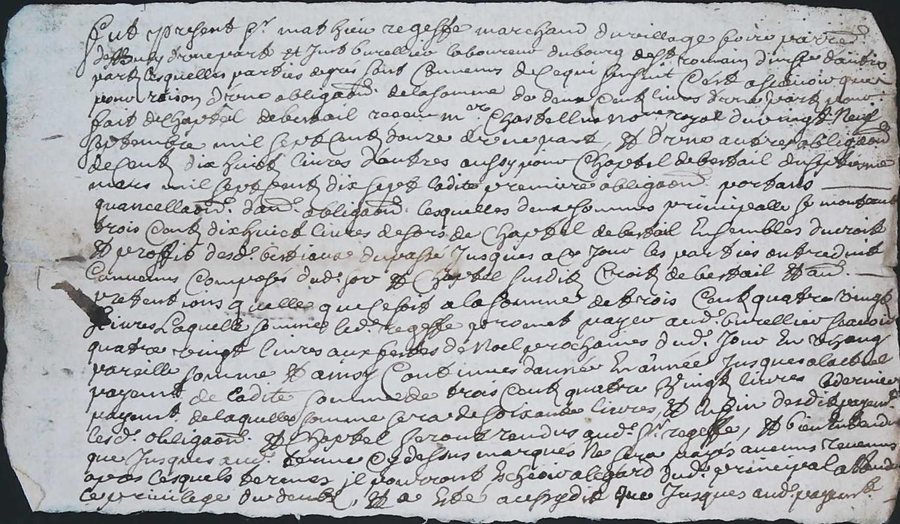 Fut present Sr mathieu regeffe marchand du village
d'une part et Just burellier laboureur du bourg de St romain d'autre
part lesquelles parties de gré sont convenus de ce qui sensuit C'est a scavoir que
pour raison d'une obligaon. de la somme de deux cent livres d'une part pour
fait de Chaptel de bestail receue Me Chastellus nore royal du vingt Neuf
septembre mil sept cent douze d'une part, Et d'une autre obligaon
de cent dix huict livres d'autres aussy pour Chaptel de bestail du
mars mil sept cent dix sept ladite premiere obligaon. portans
quancellaon. d'aue. obligaon. lesquelles deux sommes principalle se montent
trois Cent dix huict livres de fors de Chaptel de bestail Ensembles du croit
Et proffit desd. bestiaux du passé Jusques a ce Jour les parties ont reduit
Convenus Composés dud. sor Et Chaptel susdit Croit de bestail Et au.
pretentions quelle que ce soit a la somme de trois Cent quatre vingt
livres Laquelle somme led. regeffe promet payer aud. burellier scavoir
quatre vingt livres aux festes de Noel prochaines dud. Jour En
pareille somme Et ainsy Continuer d'année En année Jusques a
payemt. de ladite somme de trois Cent quatre Vingt livres le dernier
payemt. de laquelle somme sera de soixante livres, Et En fin desdits payemt.
lesd. obligaon. Et Chaptel seront rendus aud. Sr. regeffe, Et bien Entendu
que Jusques aud. terme Cy dessous marqués Ne sera payés aucuns revenus
apres lesquels termes il pourront Eschoir a legard dud. principal attendu
le privilege du Et a Esté aussy dit que Jusques aud. payemt.